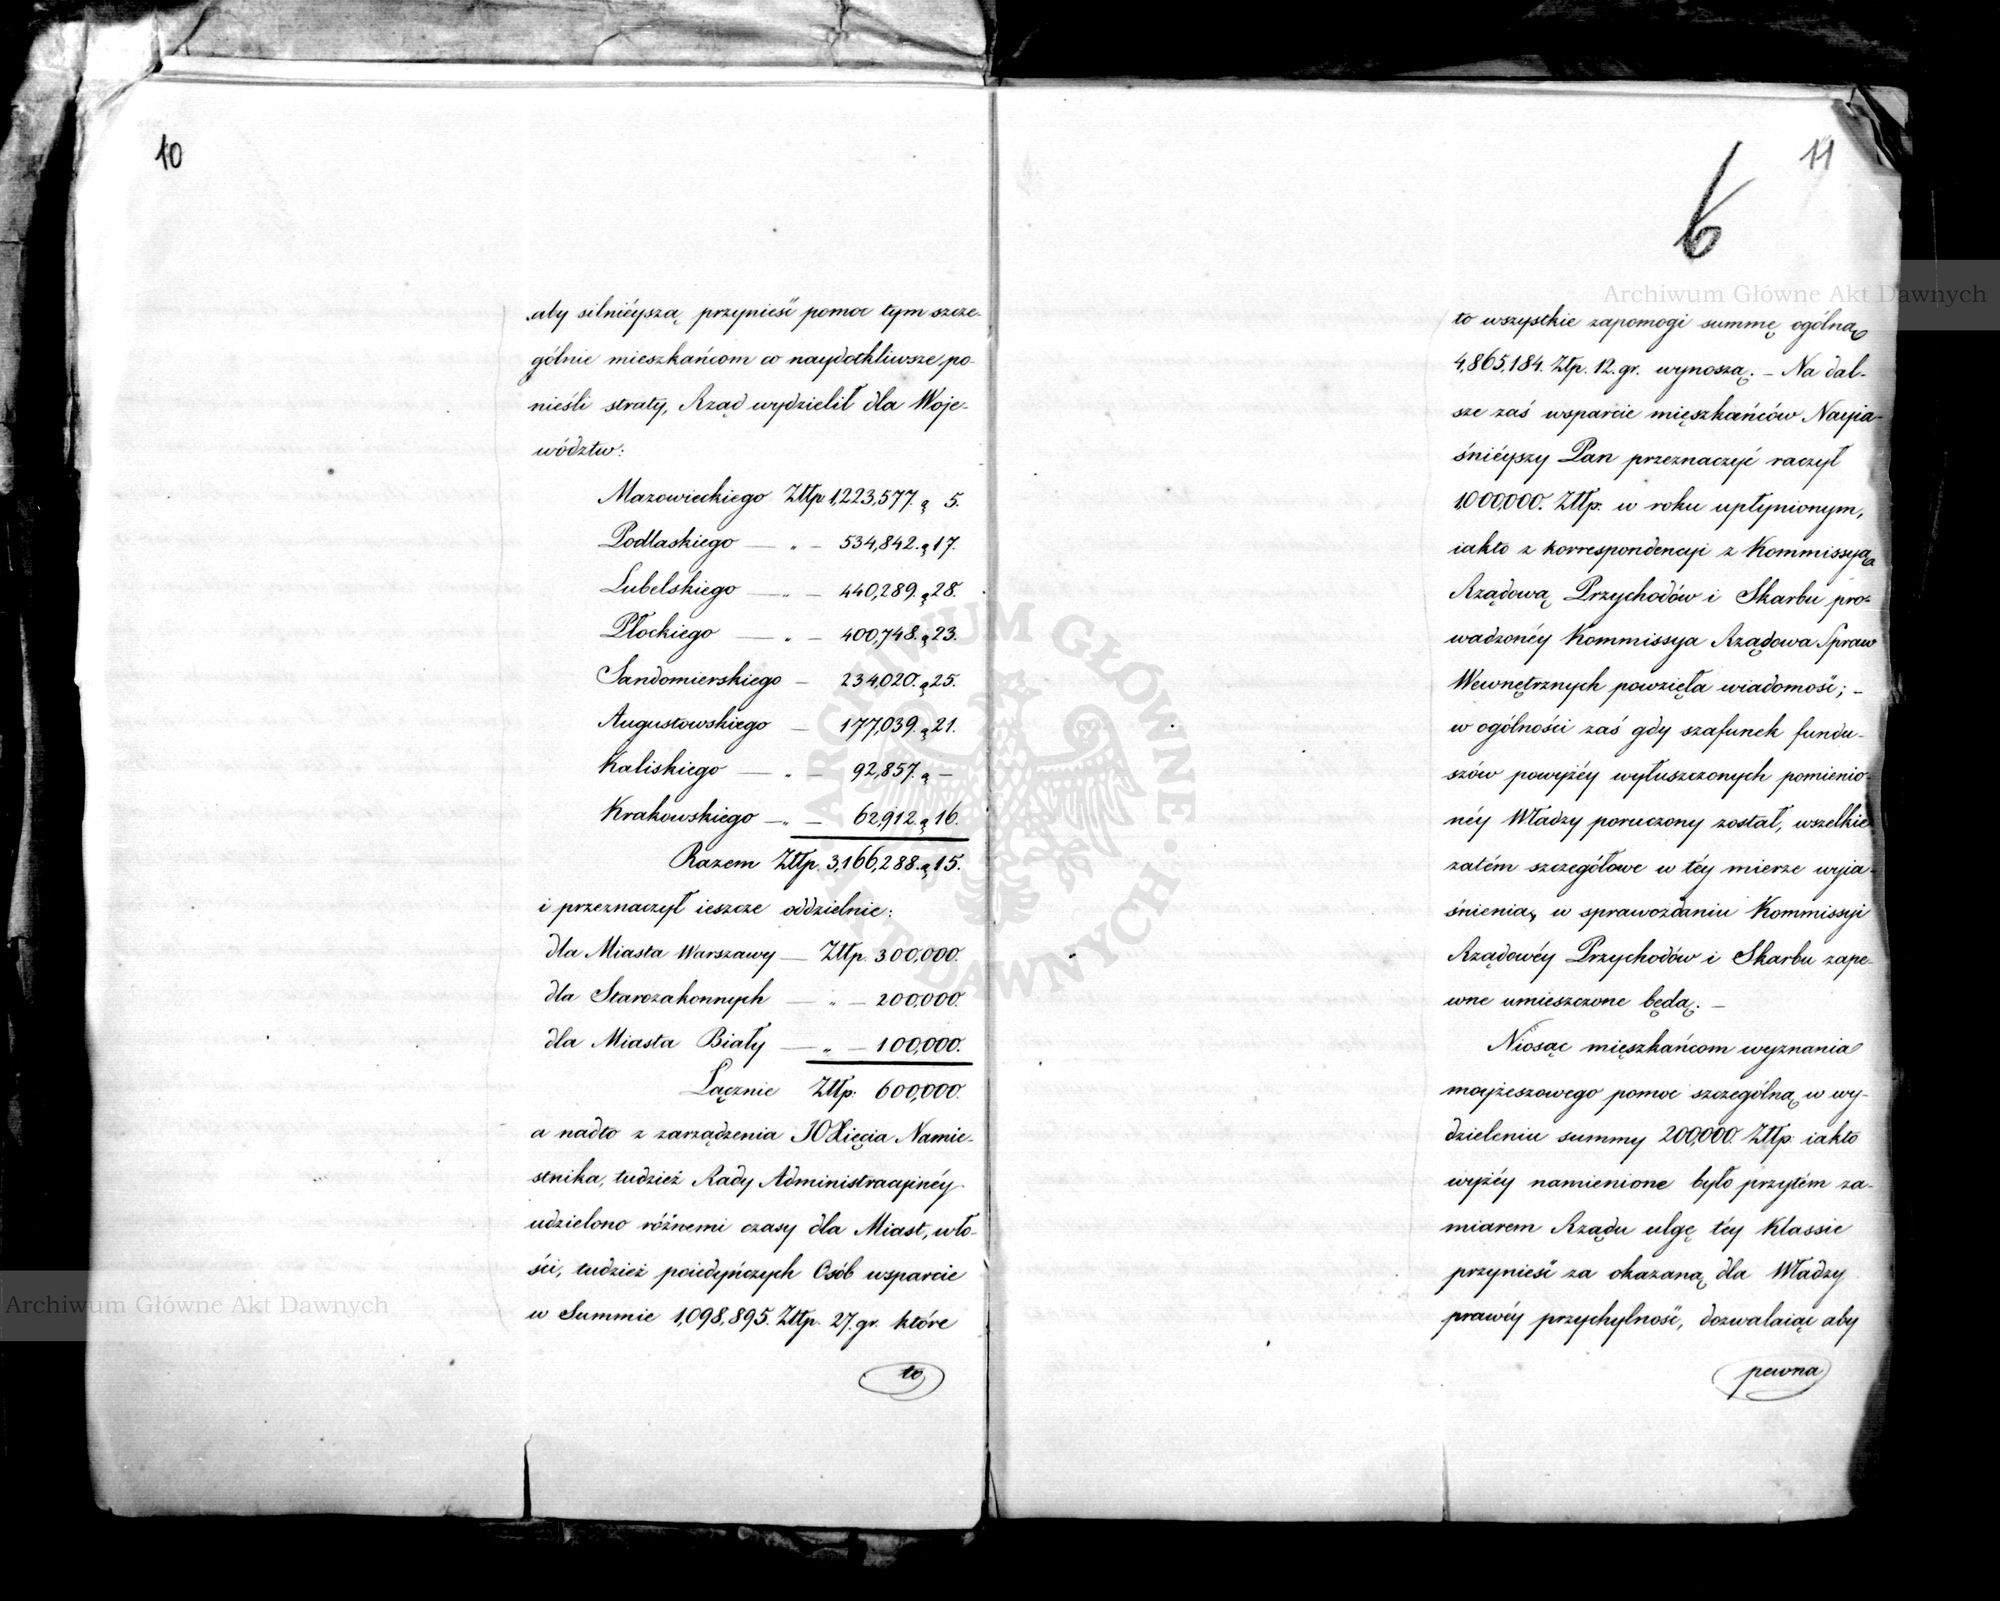 10
aby silniéyszą przynieść pomoc tym szcze-
gólnie mieszkańcom co naydotkliwsze po-
nieśli straty, Rząd wydzielił dla Woje-
wództw:
Mazowieckiego Złłp 1,223,577. g 5.
Podlaskiego — „ — 534,842. g 17.
Lubelskiego — „ — 440,289. g 28.
Płockiego — „ — 400,748. g 23.
Sandomierskiego — 234,020. g 25.
Augustowskiego — 177,039. g 21.
Kaliskiego — „ — 92,857. g —
Krakowskiego — „ — 62,912. g 16.
Razem Złłp. 3,166,288. g 15.
i przeznaczył ieszcze oddzielnie:
dla Miasta Warszawy — Złłp. 300,000.
dla Starozakonnych — „ — 200,000.
dla Miasta Biały — „ — 100,000.
Łącznie Złłp: 600,000.
a nadto z zarządzenia JO Xięcia Namie-
stnika, tudzież Rady Administracyinéy
udzielono różnemi czasy dla Miast, wło-
ści, tudzież poiedyńczych Osób wsparcie
w Summie 1,098,895. Złłp. 27. gr. które
to
11
6
to wszystkie zapomogi summę ogólną
4,865,184. Złp. 12. gr. wynoszą. — Na dal-
sze zaś wsparcie mięszkańców Nayia-
śniéyszy Pan przeznaczyć raczył
1,000,000. Złłp. w roku upłynionym,
iakto z korrespondencyi z Kommissyą
Rządową Przychodów i Skarbu pro-
wadzonéy Kommissya Rządowa Spraw
Wewnętrznych powzięła wiadomość; —
w ogólności zaś gdy szafunek fundu-
szów powyżéy wyłuszczonych pomienio-
néy Władzy poruczony został, wszelkie
zatém szczegółowe w téy mierze wyia-
śnienia, w sprawozdaniu Kommissyi
Rządowéy Przychodów i Skarbu zape-
wne umieszczone będą. —
Niosąc mięszkańcom wyznania
moyżeszowego pomoc szczególną w wy-
dzieleniu summy 200,000. Złłp. iakto
wyżéy namienione było przytém za-
miarem Rządu ulgę téy Klassie
przynieść za okazaną dla Władzy
prawéy przychylność, dozwalaiąc aby
pewna
Archiwum Główne Akt Dawnych
Archiwum Główne Akt Dawnych
ARCHIWUM GŁÓWNE AKT DAWNYCH